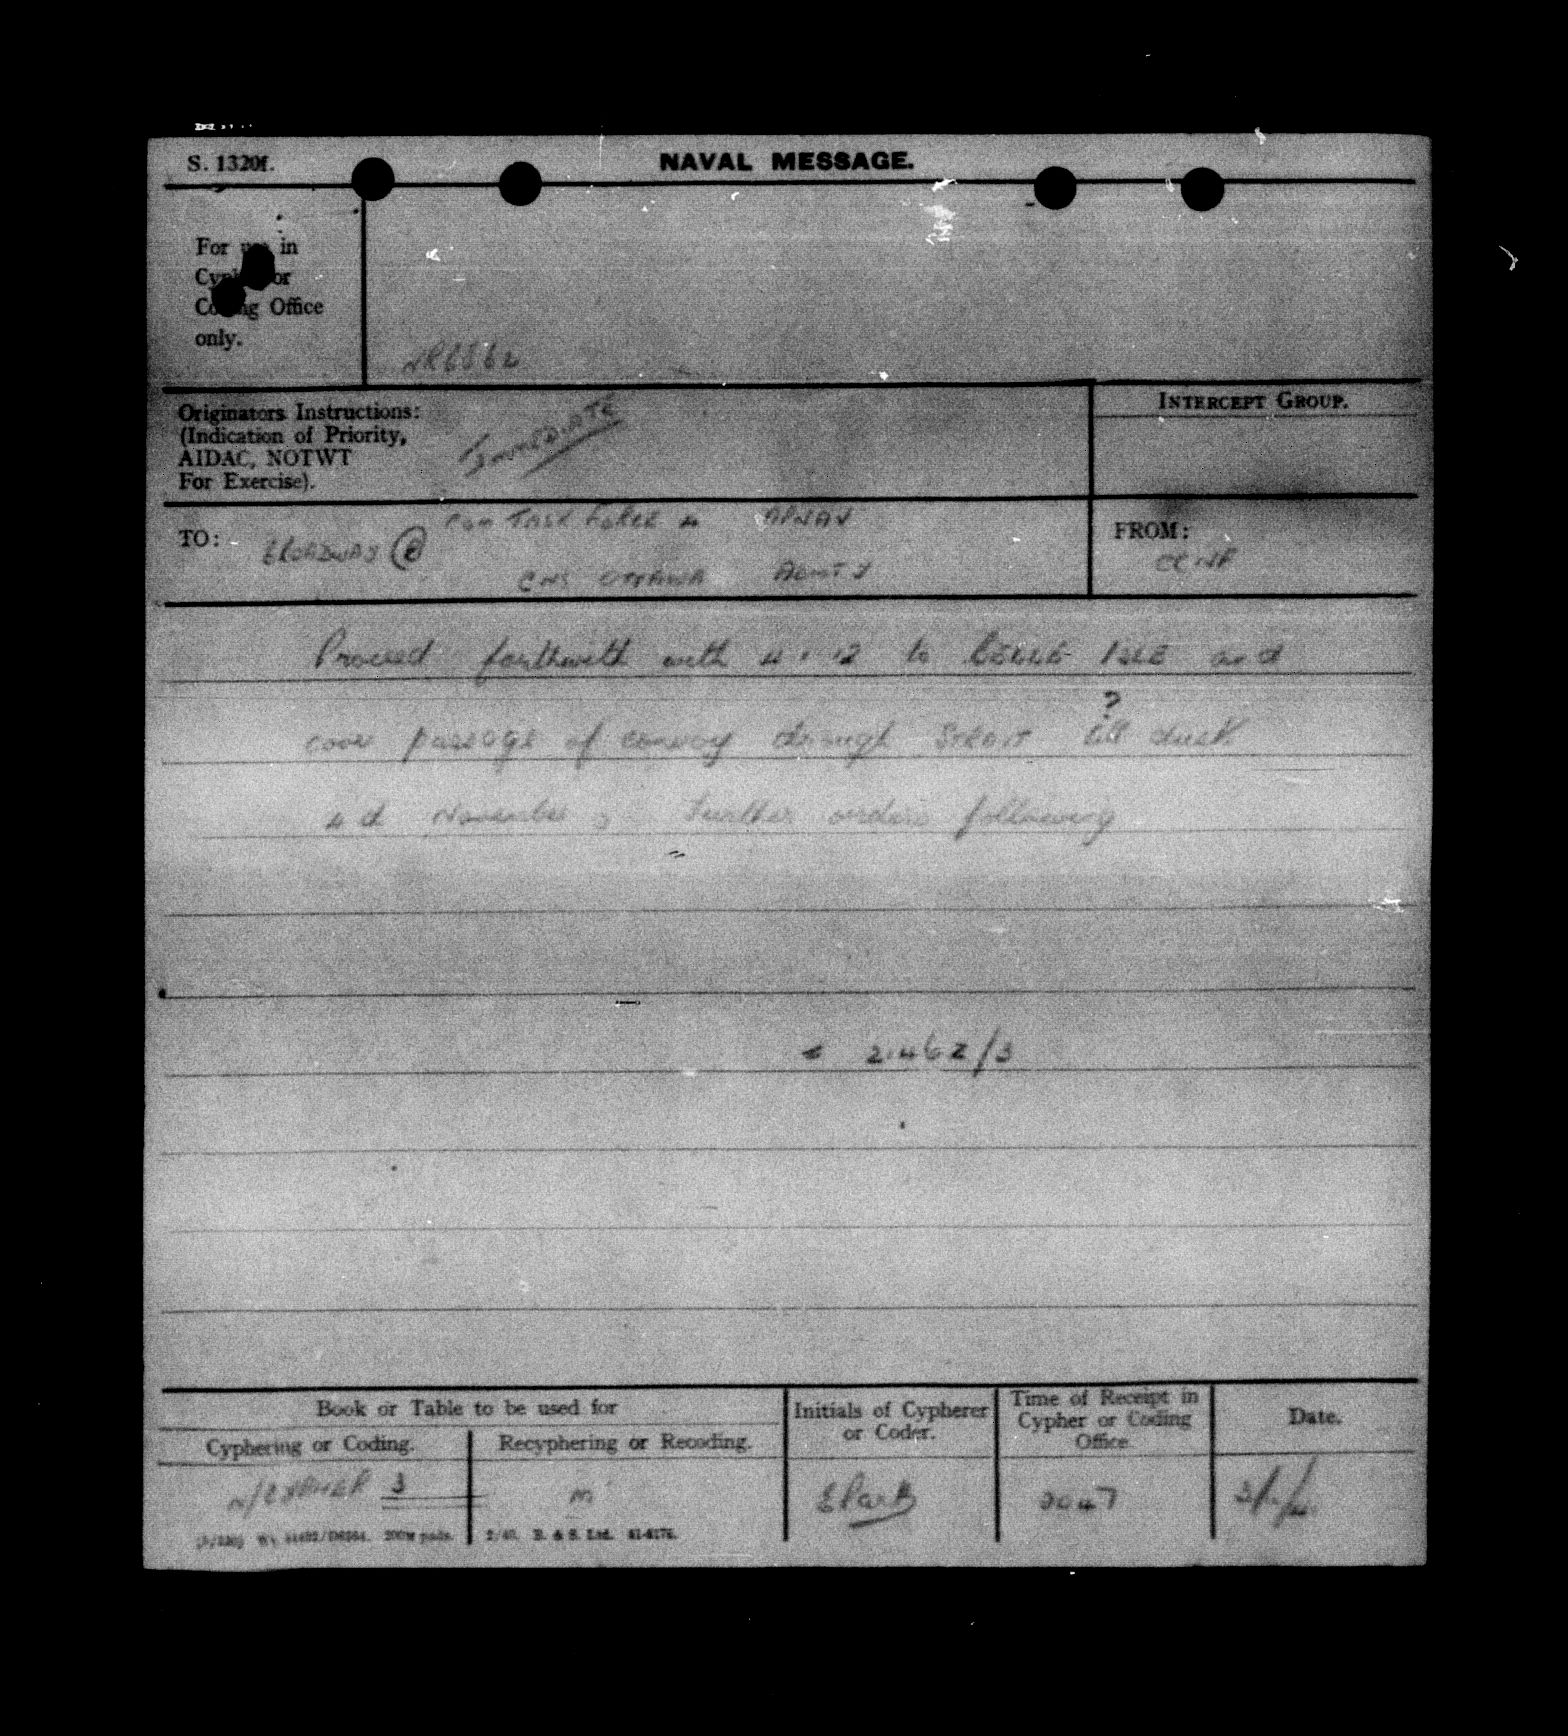 S. 1320f.
NAVAL MESSAGE.
For use in
Cypher or
Coding Office
only.
Originators Instructions:
(Indication of Priority,
AIDAC, NOTWT
For Exercise).
IMMEDIATE
INTERCEPT GROUP.
TO:
BROADWAY (R)
COM TASK FORCE 4
CNS OTTAWA ADMTY
FROM:
CCNF
Proceed forthwith with 4.1.12 to BELLE ISLE and
cover passage of convoy through STRAIT till dusk
?
4th November, Further orders following
= 2146Z/3
Book or Table to be used for
Cyphering or Coding.
Recyphering or Recoding.
Initials of Cypherer
or Coder.
Time of Receipt in
Cypher or Coding
Office
Date.
N/CYPHER 3
M
2047
2/40. B. & S. Ltd.